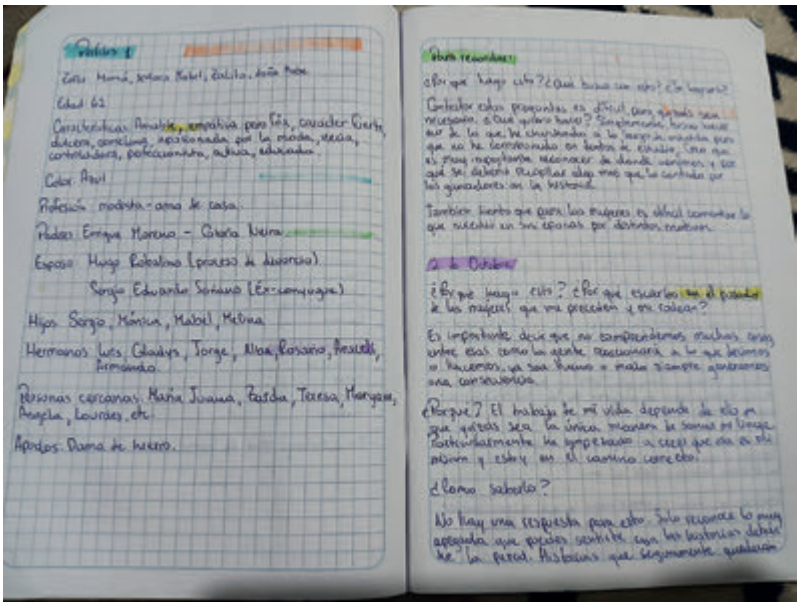 Perfiles 1
Mamá, señora Mabel, Zoilita, doña Mabe
Edad 62
Características Amable, empática pero fría, carácter fuerte,
dulcera, consejera, apasionada por la moda, necia,
controladora, proteccionista, activa, educada.
Color Azul
Profesión modista - ama de casa.
Padres Enrique Moreno - Gloria Neira
Esposo Hugo Robalino (proceso de divorcio)
Sergio Eduardo Soriano (Ex-conyugue)
Hijos Sergio, Mónica, Mabel, Melina
Hermanos Luis, Gladys, Jorge, Nixa, Rosario, Araceli,
Armando.
Personas cercanas: María Juana, Zaida, Teresa, Maryam,
Angela, Lourdes, etc
Apodos: Dama de hierro.
Para recordar:
¿Por que hago esto? ¿Qué busco con esto? ¿Es importante?
Contestar estas preguntas es difícil, pero quizás sea
necesario. ¿Qué quiero hacer? Simplemente, busco hacer
eso de lo que he escuchado a lo largo de mi vida pero
que no he comprendido en tantos de estudio. Creo que
es muy importante reconocer de donde venimos y por
qué se debería recopilar algo más que lo contado por
los ganadores en la historia.
También siento que para las mujeres es difícil comentar lo
que sucedió en sus épocas por distintos motivos.
2 de Octubre
¿Por que hago esto? ¿Por qué escarbo en el pasado
de las mujeres que me preceden y me rodean?
Es importante decir que no comprendemos muchas cosas
entre esas como la gente reaccionará a lo que decimos
o hacemos, ya sea bueno o malo siempre generamos
una consecuencia.
¿Porque? El trabajo de mi vida depende de ello ya
que quizás sea la única manera de sanar mi linaje
Particularmente he empezado a creer que esa es mi
misión y estoy en el camino correcto.
¿Como saberlo?
No hay una respuesta para esto. Solo reconoce lo muy
apegada que puedes sentirte con las historias detrás
de la pared. Historias que seguramente quedaron